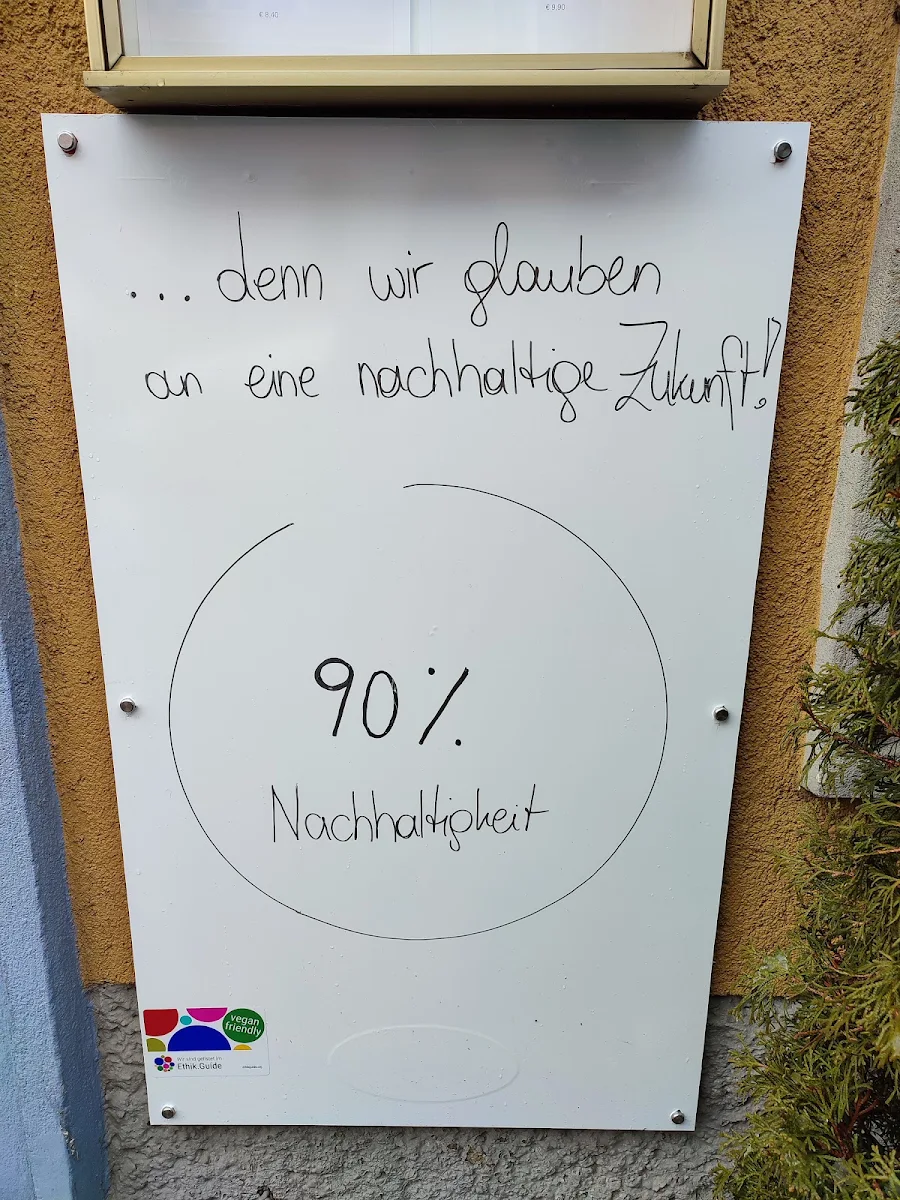 € 8.40
€ 9.90
... denn wir glauben
an eine nachhaltige Zukunft!
90%
Nachhaltigkeit
vegan
friendly
Wir sind gelistet im
Ethik.Guide